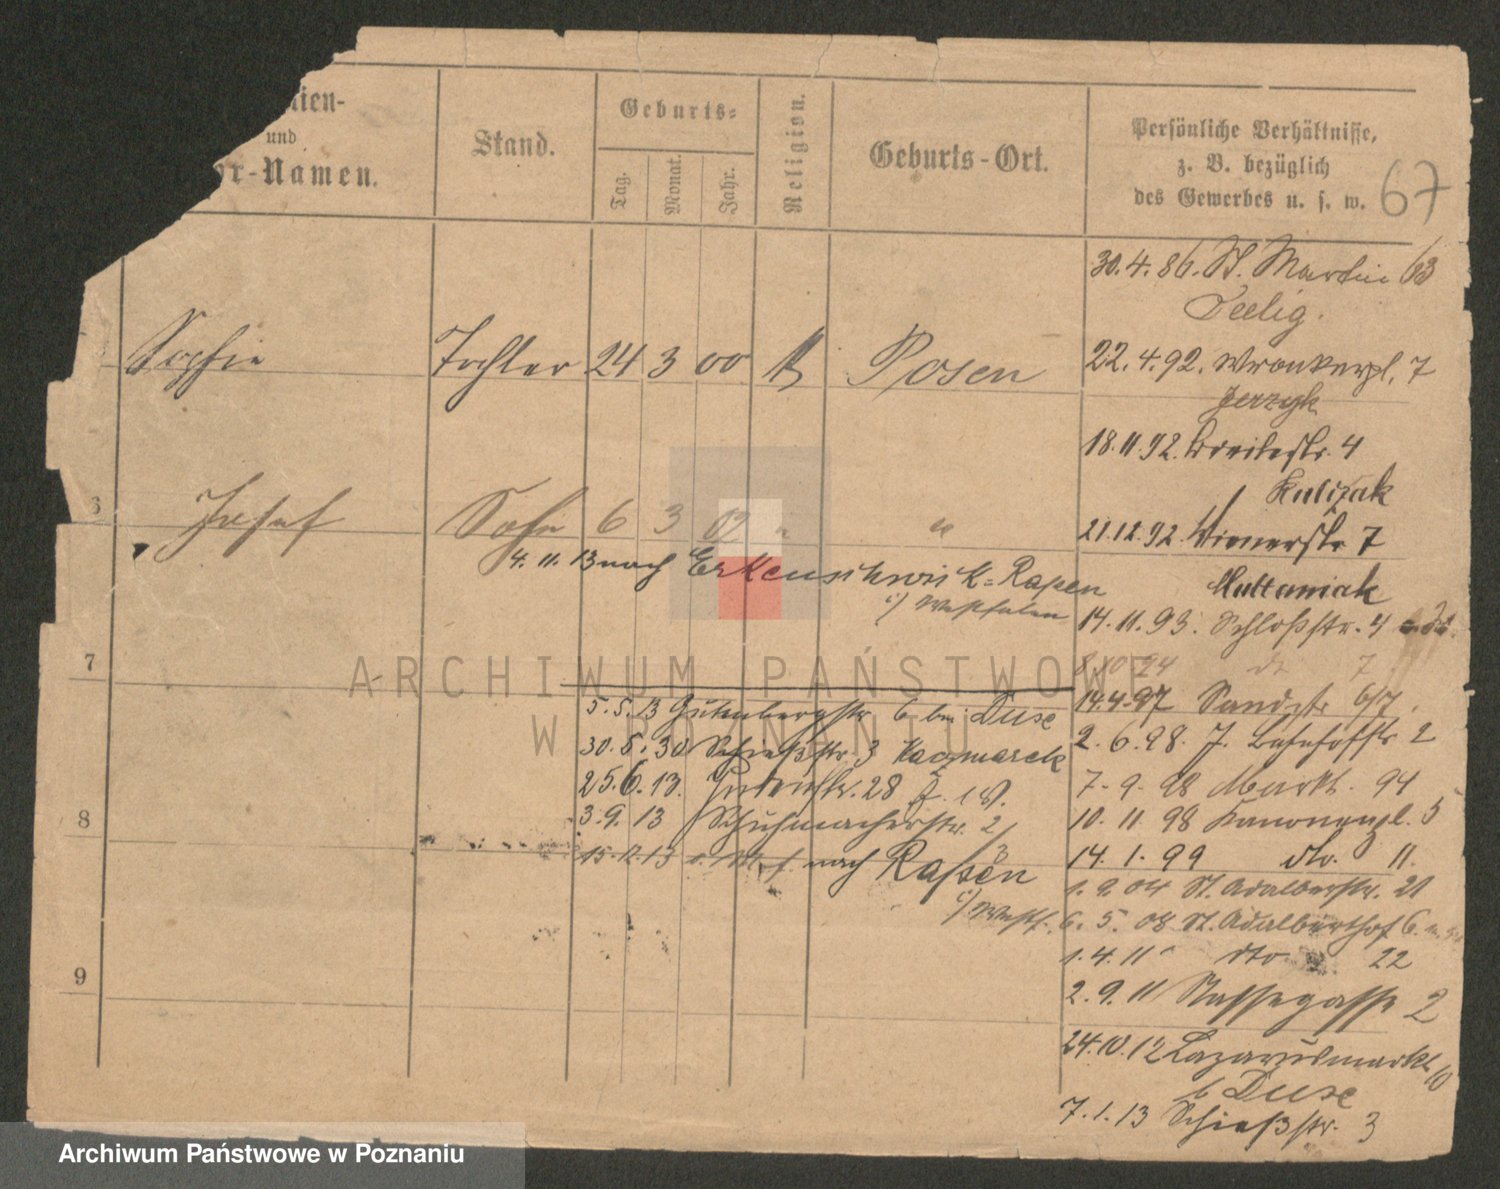 und
-Namen.
Stand.
Geburts-
Tag.
Monat.
Jahr.
Religion.
Geburts-Ort.
Persönliche Verhältnisse,
z. B. bezüglich
des Gewerbes u. s. w.
67
Sophie Tochter 24 3 00 Posen
6 Josef Sohn 6 3 02 " "
4. 11. 13 nach Erkenschwick=Rapen
i/ Westfalen
7
5. 5. 13 Gutenbergstr 6 bei Duse
30. 5. 30 Schießstr. 3 Kaczmarek
25. 6. 13. 28
8
3. 9. 13 Schuhmacherstr. 2
15. 12. 13 nach Rapen
i/ Westf.
9
30. 4. 86. St. Martin 63
Seelig.
22. 4. 92. Wronkerpl. 7
Jerzyk
18. 11. 92. Breitestr. 4
Kulizak
21. 12. 92. Wienerstr 7
Multaniak
14. 11. 93. Schloßstr. 4
8. 10. 94 do 7
14. 4. 97 Sandstr 6/7.
2. 6. 98. J. Bahnhofstr 2
7. 9. 98 Markt. 94
10. 11 98 Kanonenpl. 5
14. 1. 99 do. 11.
1. 9. 04 St. Adalbertstr. 21
6. 5. 08 St. Adalberthof 6.
1. 4. 11 dto 22
2. 9. 11 Nassegasse 2
24. 10. 12 Lazarusmarkt 10
b Duse
7. 1. 13 Schießstr. 3
ARCHIWUM PAŃSTWOWE
W POZNANIU
Archiwum Państwowe w Poznaniu